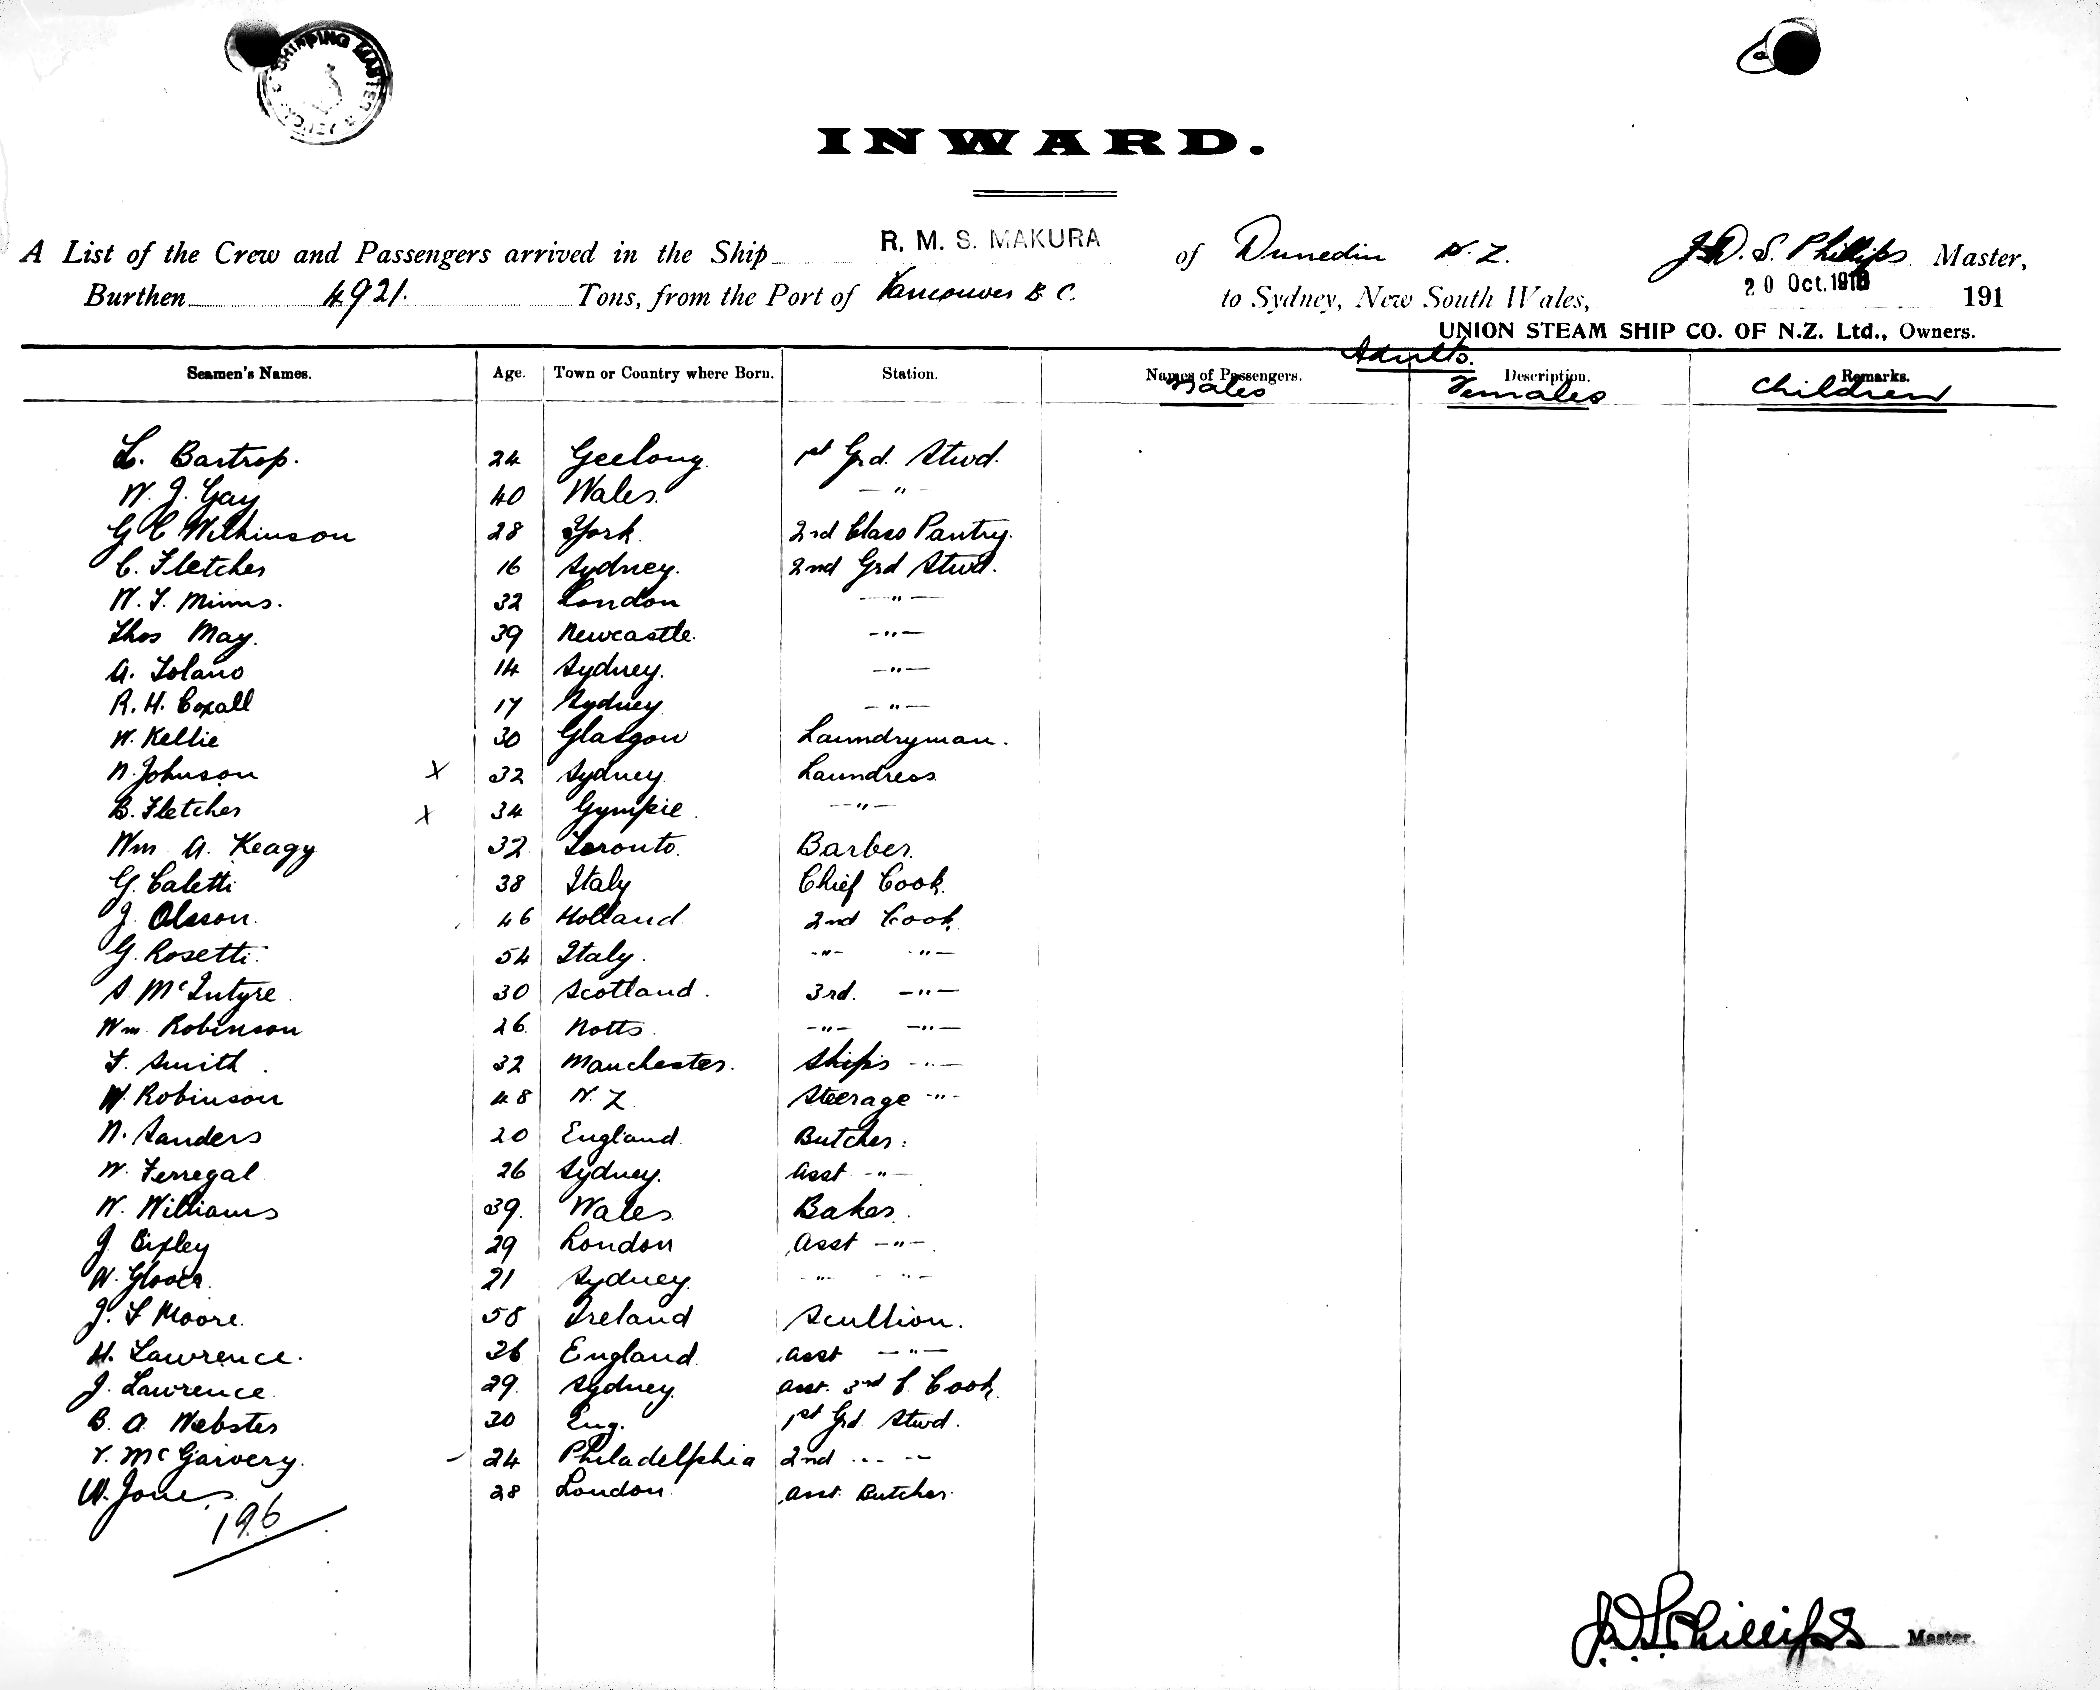 SHIPPING MASTER
INWARD.
A List of the Crew and Passengers arrived in the Ship R. M. S. MAKURA of Dunedin N. Z. J. D. S. Phillips Master,
Burthen 4921. Tons, from the Port of Vancouver B C. to Sydney, New South Wales, 20 Oct. 191
UNION STEAM SHIP CO. OF N.Z. Ltd., Owners.
Adults.
Seamen's Names. Age. Town or Country where Born. Station. Names of Passengers. Description. Remarks.
Males Females Children
L. Bartrop. 24 Geelong 1st Grd. Stwd.
W. J. Gay 40 Wales. — " —
G C Wilkinson 28 York. 2nd Class Pantry.
C. Fletcher 16 Sydney. 2nd Grd Stwd.
W. T. Mimms. 32 London — " —
Thos May. 39 Newcastle. — " —
A. Tolano 14 Sydney. — " —
R. H. Coxall 17 Sydney — " —
W. Kellie 30 Glasgow Laundryman.
N. Johnson x 32 Sydney Laundress
B. Fletcher x 34 Gympie — " —
Wm A. Keagy 32 Toronto. Barber.
G. Caletti 38 Italy Chief Cook.
J. Olsson. 46 Holland 2nd Cook
G. Rosetti. 54 Italy. — " — — " —
S. McIntyre 30 Scotland. 3rd. — " —
Wm. Robinson 26 Notts. — " — — " —
F. Smith. 32 Manchester. Ships — " —
W. Robinson 48 N. Z. Steerage — " —
N. Sanders 20 England. Butcher.
W. Ferregal 26 Sydney. Asst — " —
W. Williams 39. Wales Baker.
J. Bixley 29 London Asst — " —
W. Glover. 21 Sydney. — " — — " —
J. S Moore. 58 Ireland Scullion.
H. Lawrence. 26 England. Asst — " —
J. Lawrence. 29. Sydney. Asst. 3rd C. Cook.
B. A Webster 30 Eng. 1st Grd Stwd.
McGarvery. 24 Philadelphia 2nd — " —
W. Jones 28 London Asst Butcher.
196
J. D. S. Phillips Master.